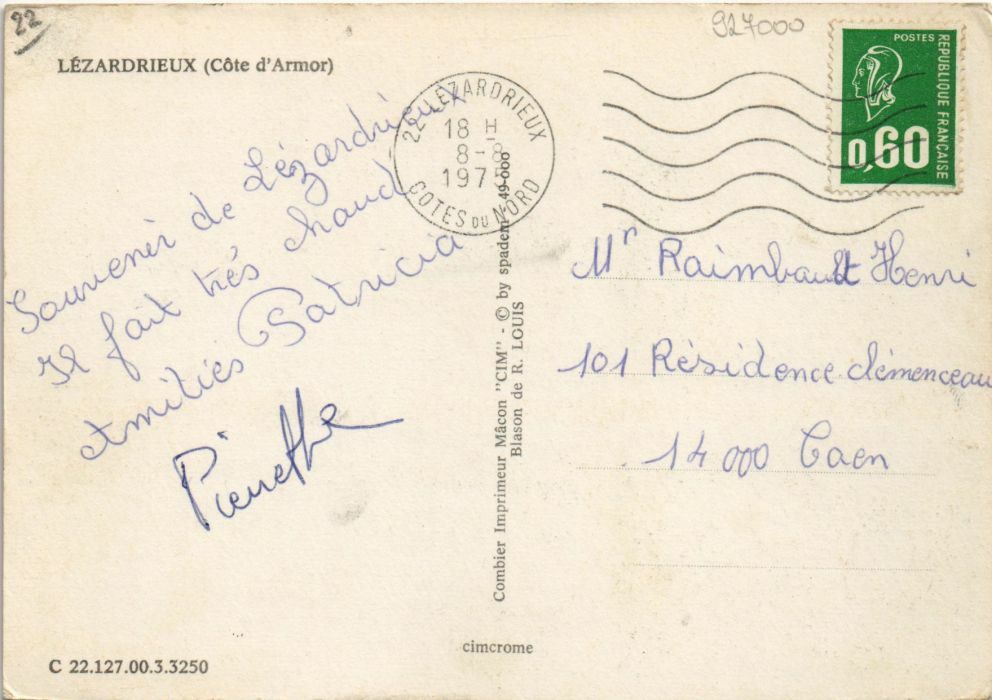 22
927000
LÉZARDRIEUX (Côte d'Armor)
22 LÉZARDRIEUX
18 H
8-8
1975
COTES DU NORD
POSTES
REPUBLIQUE FRANÇAISE
0,60
Souvenir de Lézardrieux
Il fait très chaud
Amitiés Patricia
Pierrette
Combier Imprimeur Mâcon "CIM" - © by spadem 49-000
Blason de R. LOUIS
Mr Raimbault Henri
101 Résidence clémenceau
14 000 Caen
cimcrome
C 22.127.00.3.3250